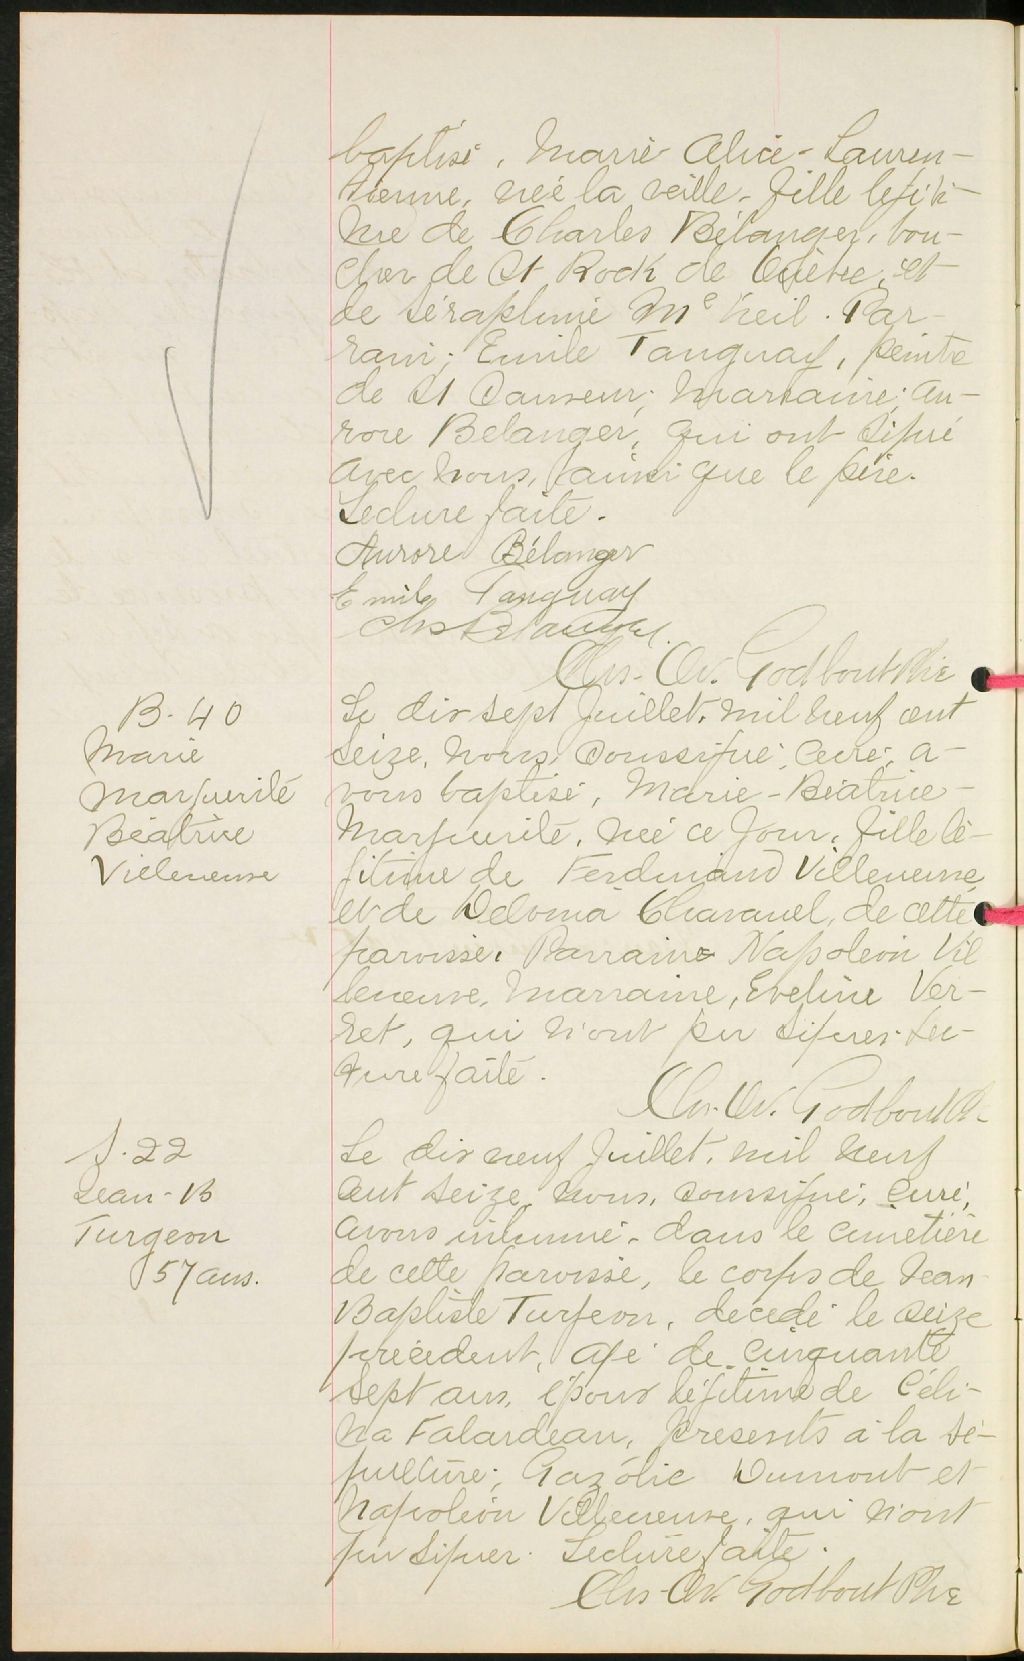 baptisé, Marie Alice-Lauren-
tienne, née la veille, fille légiti-
me de Charles Bélanger, bou-
cher de St Roch de Québec, et
de Séraphine McNeil. Par-
rain; Emile Tanguay, peintre
de St Sauveur; marraine; Au-
rore Bélanger, qui ont signé
avec nous, ainsi que le père.
Lecture faite.
Aurore Bélanger
Emile Tanguay
Chs Bélanger
Chs-Ov. Godbout Ptre
B. 40
Marie
Marguerite
Béatrice
Villeneuve
Le dix sept Juillet, mil neuf cent
seize, nous, soussigné, curé, a-
vons baptisé, Marie-Béatrice-
Marguerite, née ce jour, fille lé-
gitime de Ferdinand Villeneuve
et de Déloma Chavanel, de cette
paroisse. Parrain Napoléon Vil
leneuve, Marraine, Eveline Ver-
ret, qui n'ont pu signer. Lec-
ture faite.
Chs-Ov. Godbout
S. 22
Jean-B
Turgeon
57 ans.
Le dix neuf Juillet, mil neuf
cent seize, nous, soussigné, curé,
avons inhumé, dans le cimetière
de cette paroisse, le corps de Jean
Baptiste Turgeon, décédé le seize
précédent, agé de cinquante
sept ans, époux légitime de Céli-
na Falardeau, Présents à la sé-
pulture; Gazolie Dumont et
Napoléon Villeneuve, qui n'ont
pu signer. Lecture faite.
Chs-Ov. Godbout Ptre